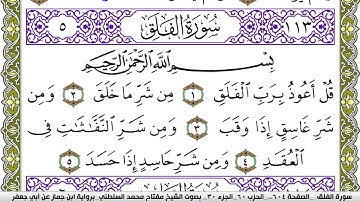 ١١٣ سُورَةُ الْفَلَقِ ٥
بِسْمِ اللَّهِ الرَّحْمَٰنِ الرَّحِيمِ
قُلْ أَعُوذُ بِرَبِّ الْفَلَقِ ١ مِن شَرِّ مَا خَلَقَ ٢ وَمِن
شَرِّ غَاسِقٍ إِذَا وَقَبَ ٣ وَمِن شَرِّ النَّفَّٰثَٰتِ فِي
الْعُقَدِ ٤ وَمِن شَرِّ حَاسِدٍ إِذَا حَسَدَ ٥
سورة الفلق _ الصفحة ٦٠٤ _ الحزب ٦٠ _ الجزء ٣٠ _ بصوت الشيخ مفتاح محمد السلطني _ برواية ابن جماز عن أبي جعفر